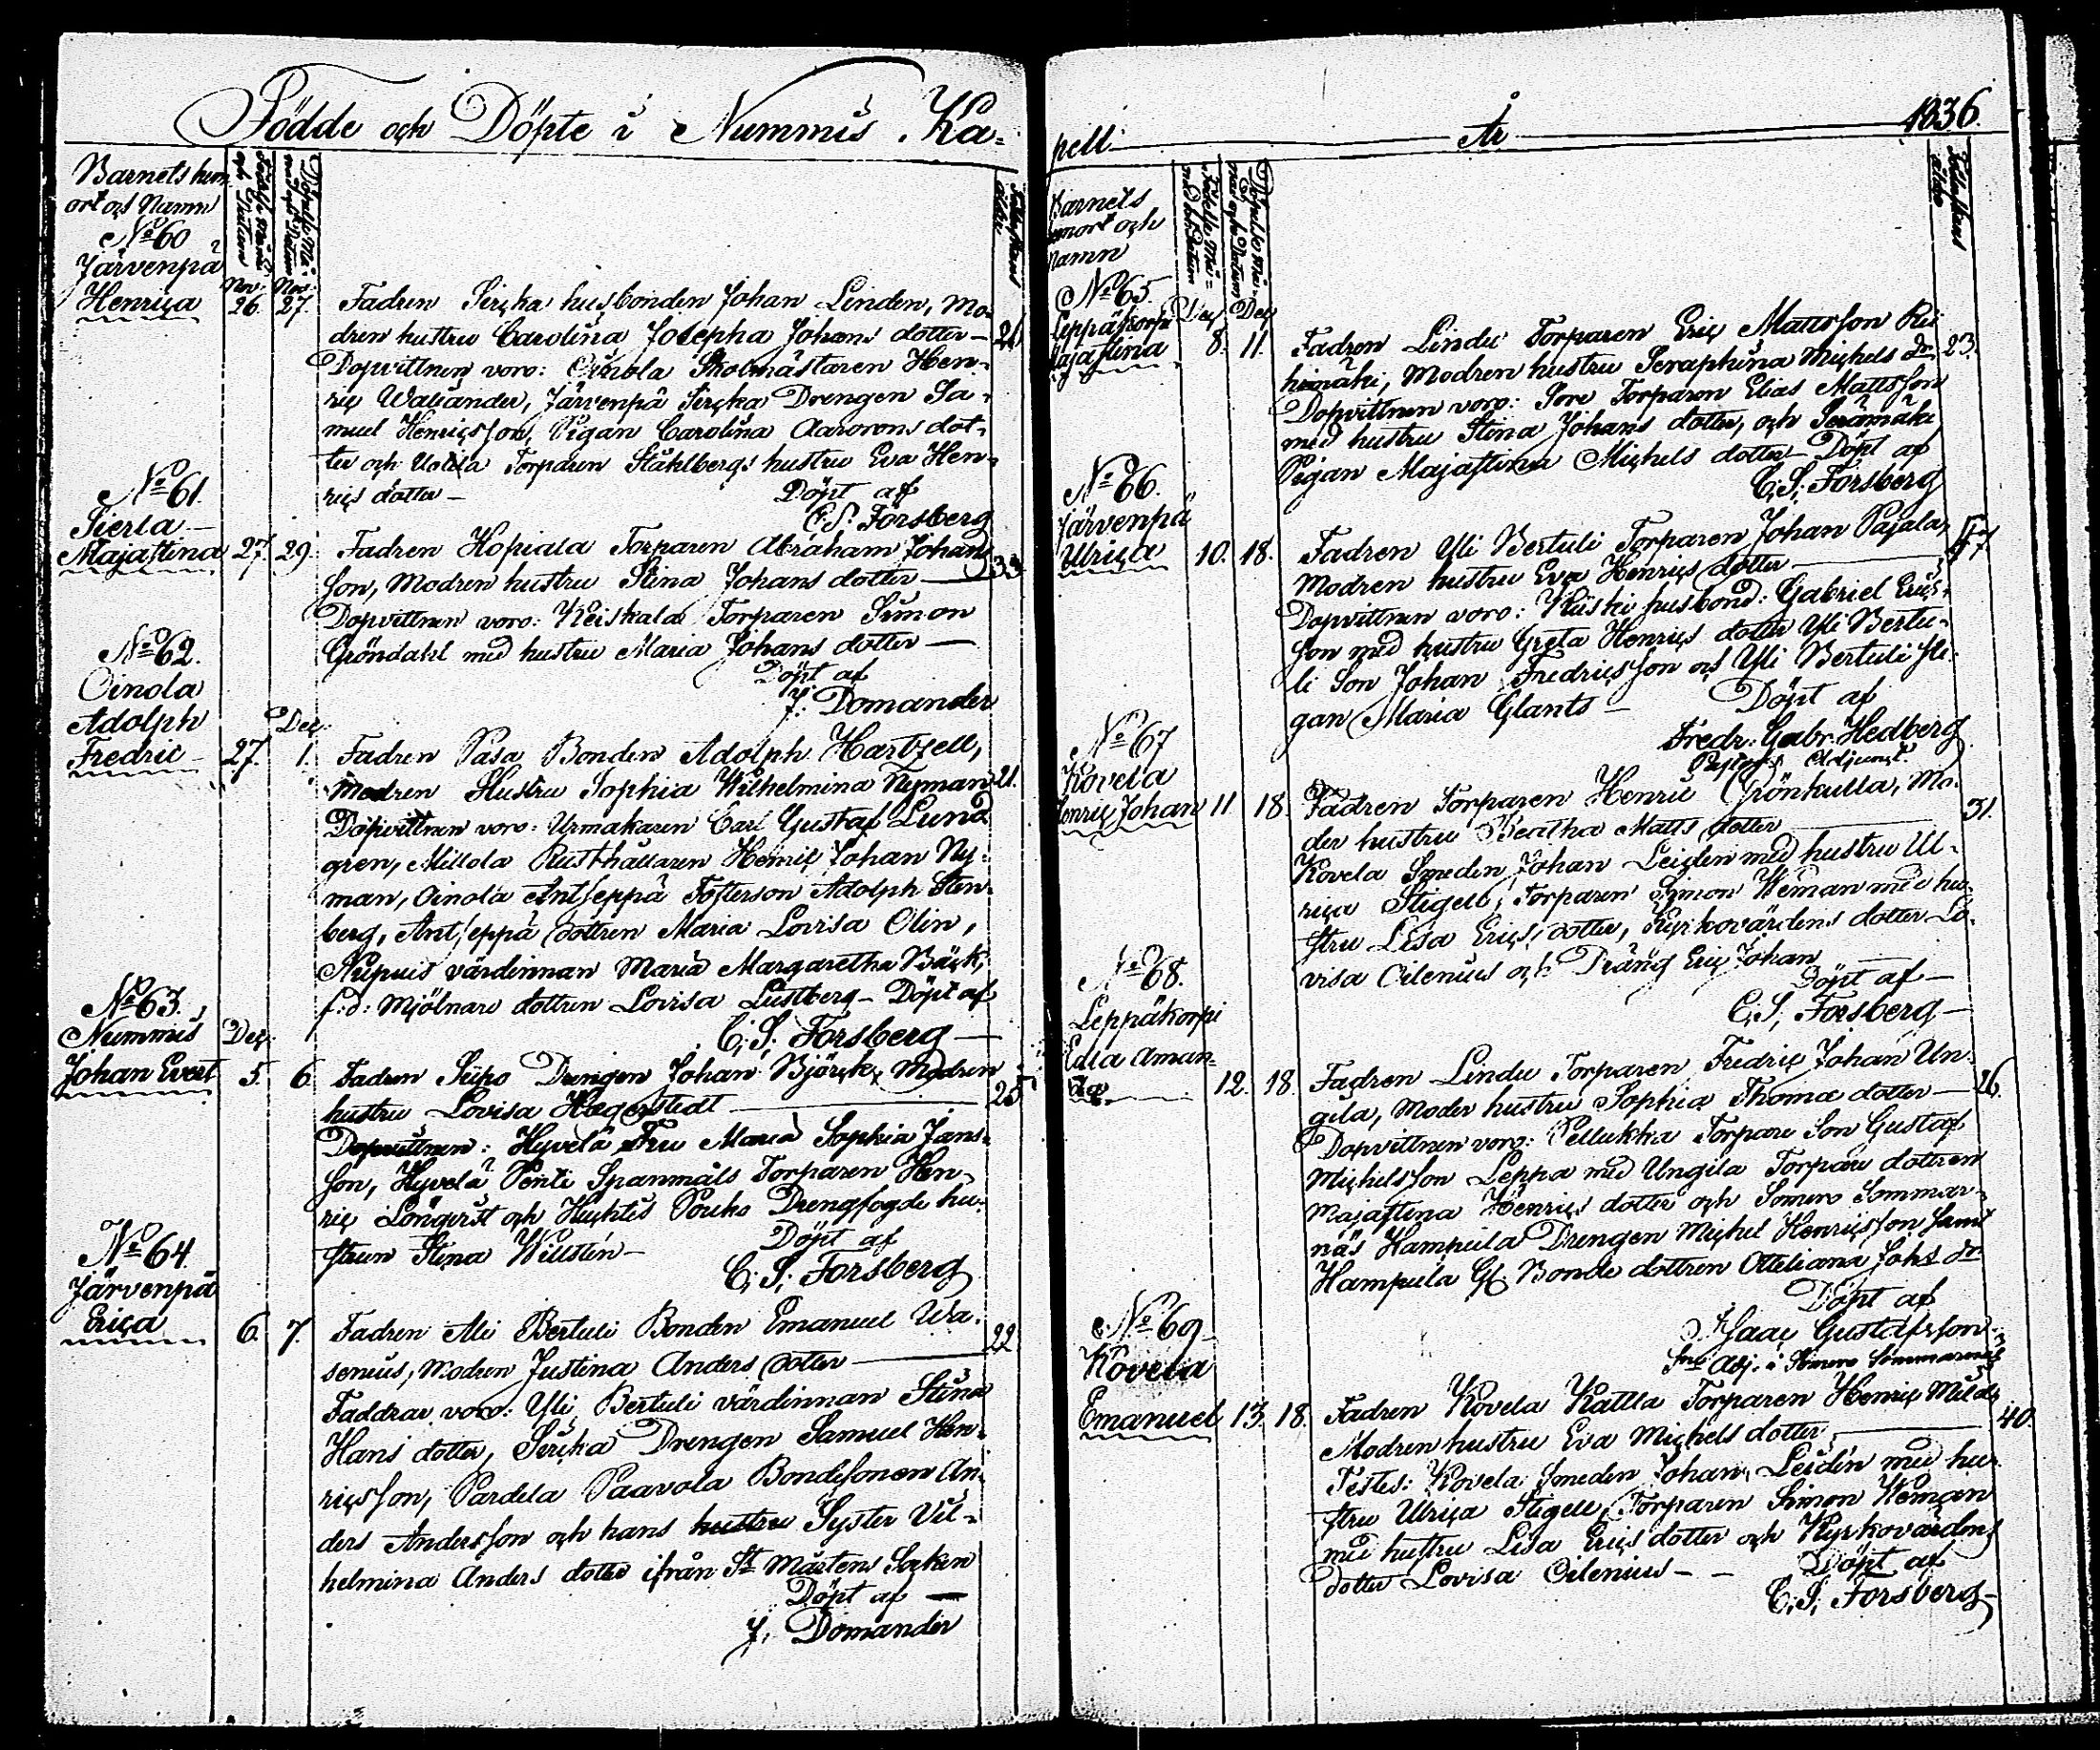 Födde och Döpte i Nummis Ka=
Barnets hem
ort och Namn
Födelse månad
och Datum
Döpelse Må-
nad och Datum
Föderskans
ålder
No 60
Järvenpä
Henrica
Nov: 26. Nov: 27.
Fadren Sircka husbonden Johan Linden, Mo-
dren hustru Carolina Josepha Johans dotter —
Dopvittnen voro: Oinola Skolmästaren Hen-
ric Waliander, Järvenpä Sircka Drengen Sa-
muel Henricsson, Pigan Carolina Aarons dot-
ter och Torparen Ståhlbergs hustru Eva Hen-
rics dotter — Döpt af
C. S. Forsberg
No 61.
Sierla —
Majastina 27. 29. 33
Fadren Hopiala Torparen Abraham Johans
son, Modren hustru Stina Johans dotter —
Dopvittnen voro: Keiskala Torparen Simon
Gröndahl med hustru Maria Johans dotter —
Döpt af
J. Domander
No 62.
Oinola
Adolph
Fredric — 27. Dec: 1. 21.
Fadren Pasa Bonden Adolph Hartzell,
Modren Hustru Sophia Wilhelmina Nyman
Dopvittnen voro: Urmakaren Carl Gustaf Lund
gren, Millola Rusthållaren Henric Johan Ny=
man, Oinola Antseppä Fosterson Adolph Sten-
berg, Antseppä dottren Maria Lovisa Olin,
Nupuis värdinnan Maria Margaretha Bäck,
f.d. Mjölnare dottren Lovisa Lustberg — Döpt af
C. S. Forsberg —
No 63.
Nummis
Johan Evert Dec: 5. 6. 25
Fadren Seipo Drengen Johan Björck, Modren
hustru Lovisa Hagerstedt —
Dopvittnen: Hyvelä Fru Maria Sophia Jans-
son, Hyvelä Penti Spanmåls Torparen Hen-
ric Lönqvist och Huhtis Pouho Drengfogde hu-
strun Stina Willstén — Döpt af
C. S. Forsberg
No 64.
Järvenpä
Erica 6. 7. 22
Fadren Ali Bertuli Bonden Emanuel Wa-
senius, Modren Justina Anders dotter —
Faddrar voro: Yli Bertuli värdinnan Stina
Hans dotter, Sircka Drengen Samuel Hen-
ricsson, Pardela Paavola Bondesonen An-
ders Andersson och hans hustru Syster Vil-
helmina Anders dotter ifrån St Mårtens Socken
Döpt af —
J. Domander
pell. År 1836.
Barnets
hemort och
Namn
Födelse Må-
nad och Datum
Döpelse Må-
nad och Datum
Föderskans
ålder
No 65.
Leppäkorpi
Majastina Dec 8. Dec 11. 23.
Fadren Lindu Torparen Eric Mattsson Rii-
himäki, Modren hustru Seraphina Michels dr
Dopvittnen voro: Sore Torparen Elias Mattsson
med hustru Stina Johans dotter, och Serämäki
Pigan Majastina Michels dotter — Döpt af
C. S. Forsberg
No 66.
Järvenpä
Ulrica 10. 18.
Fadren Yli Bertuli Torparen Johan Pajala,
Modren hustru Eva Henrics dotter —
Dopvittnen voro: Kuiski husbond: Gabriel Erics-
son med hustru Greta Henrics dotter Yli Bertu-
li Son Johan Fredricsson och Yli Bertuli Pi-
gan Maria Glants — Döpt af
Fredr: Gabr: Hedberg
Pastors Adjunct.
No 67
Kovela
Henric Johan 11 18. 31.
Fadren Torparen Henric Grönkulla, Mo-
der hustru Beatha Matts dotter —
Kovela Smeden Johan Leiden med hustru Ul-
rica Stigell, Torparen Symon Weman med hu-
stru Lisa Erics dotter, Kyrkovärdens dotter Lo-
visa Oilenius och Dräng Eric Johan —
Döpt af —
C. S. Forsberg —
No 68.
Leppäkorpi
Edla Aman-
da 12. 18. 26.
Fadren Lindu Torparen Fredric Johan Un-
gila, Moder hustru Sophia Thomæ dotter —
Dopvittnen voro: Pellukka Torpare Son Gustaf
Michelsson Leppä med Ungila Torpare dottren
Majastina Henrics dotter och Somero Sommar-
näs Hampula Drengen Michel Henricsson samt
Hampula Bonde dottren Otteliana Johs dr
Döpt af
Isaac Gustafsson
Adj. i Somero Sommarnäs
No 69
Kovela
Emanuel 13. 18. 40.
Fadren Kovela Kattla Torparen Henric Mild,
Modren hustru Eva Michels dotter —
Testes: Kovela Smeden Johan Leidén med hu-
stru Ulrica Stigell, Torparen Simon Weman
med hustru Lisa Erics dotter och Kyrkovärdens
dotter Lovisa Oilenius — — Döpt af
C. S. Forsberg —